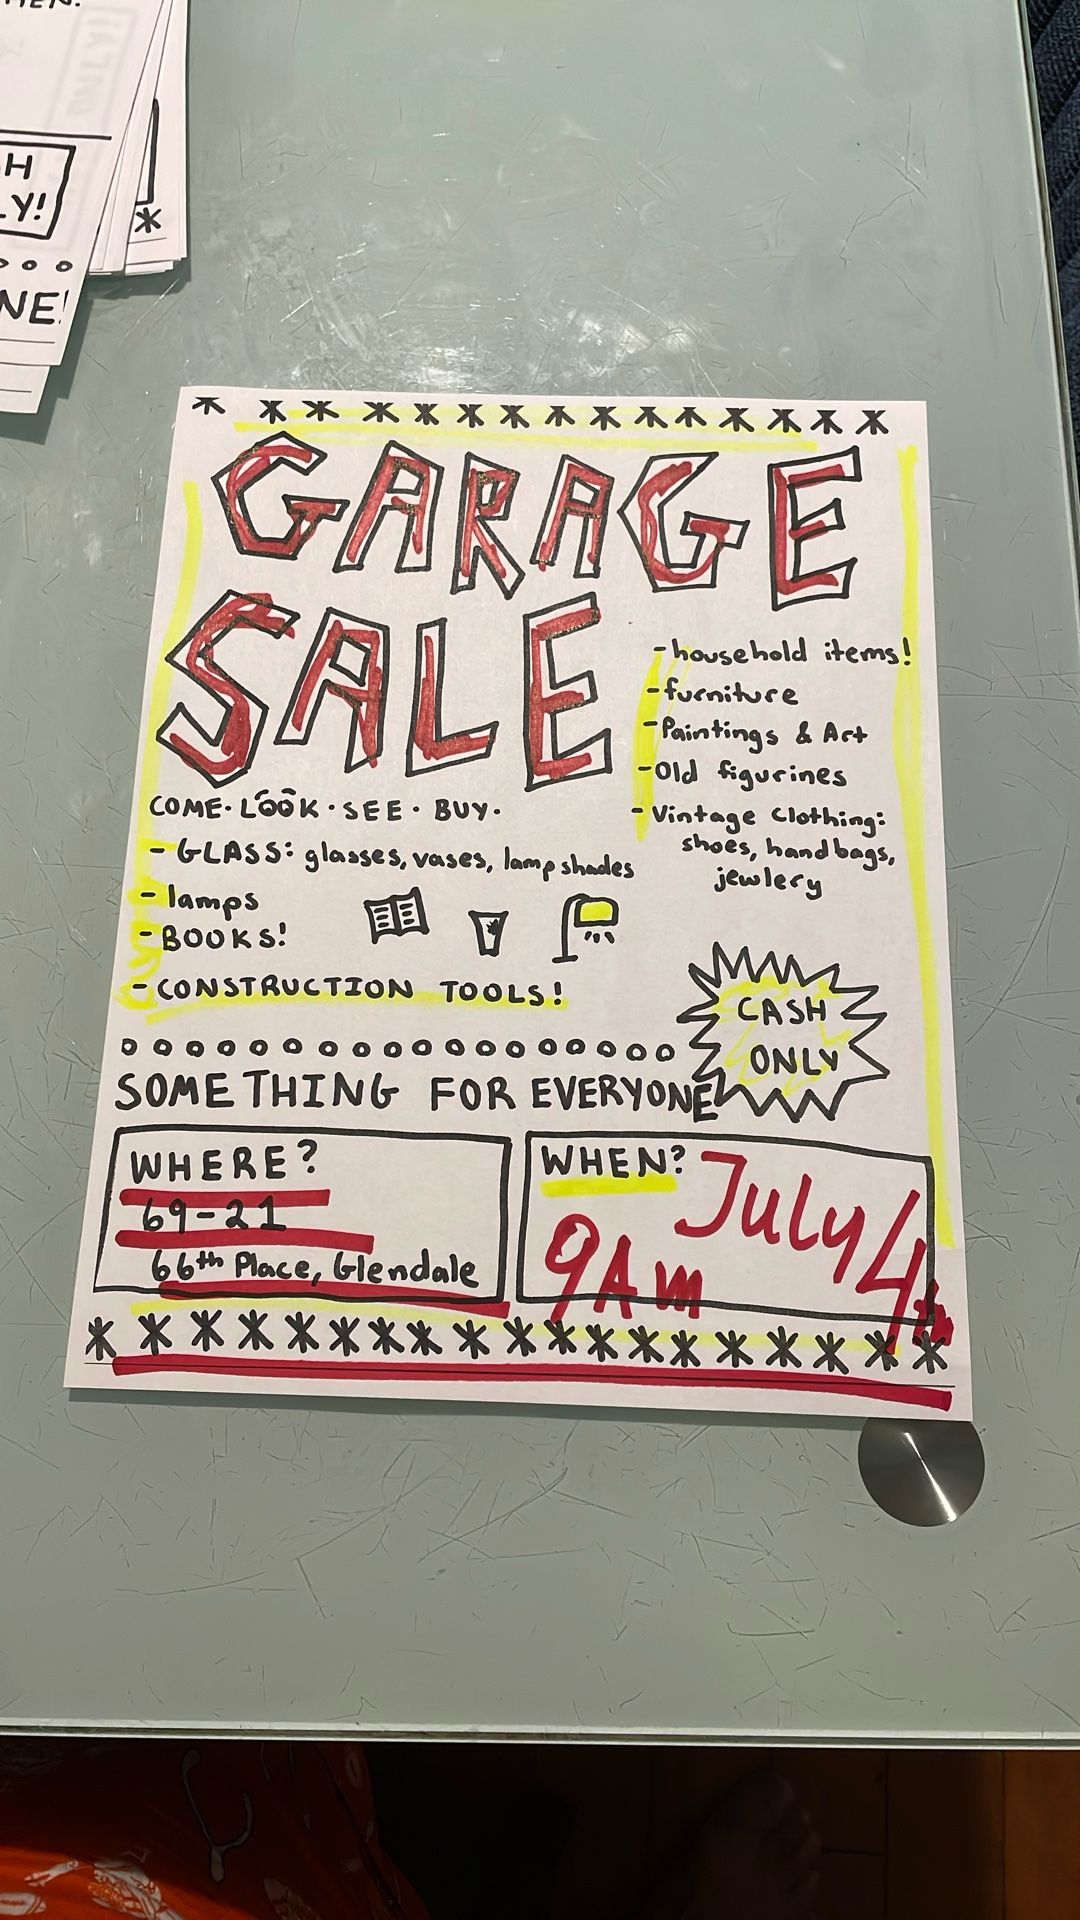 MEN.
ONLY!
H
LY!
NE!
GARAGE
SALE
COME·LOOK·SEE·BUY.
- GLASS: glasses, vases, lamp shades
- lamps
- BOOKS!
- CONSTRUCTION TOOLS!
- household items!
- furniture
- Paintings & Art
- Old figurines
- Vintage Clothing:
shoes, handbags,
jewlery
CASH
ONLY
SOMETHING FOR EVERYONE
WHERE?
69-21
66th Place, Glendale
WHEN?
July 4th
9AM